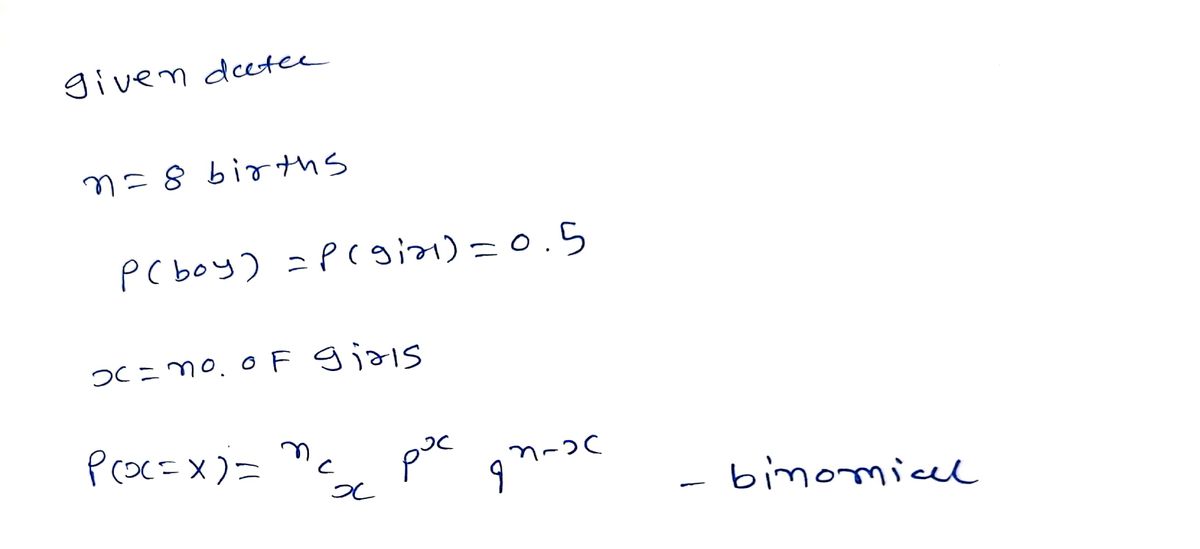 given data
n = 8 births
P(boy) = P(girl) = 0.5
x = no. of girls
P(x = X) = ⁿCₓ pˣ qⁿ⁻ˣ - binomial